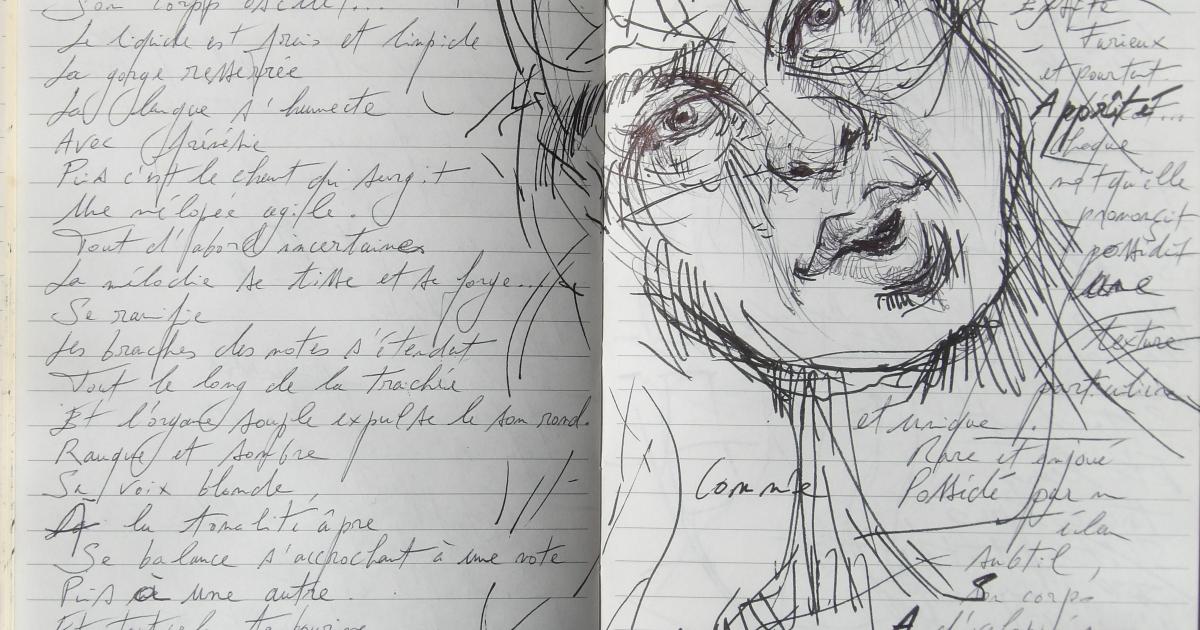 Son corps
Le liquide est frais et limpide
La gorge resserrée
La langue s'humecte
Avec frénésie
Puis c'est le chant qui surgit
Une mélopée agile.
Tout d'abord incertaines
La mélodie se tisse et se forge...
Se ramifie
Les braches des notes s'étendent
Tout le long de la trachée
Et l'organe souple expulse le son rond.
Rauque et sombre
Sa voix blonde,
À la tonalité âpre
Se balance s'accrochant à une note
Puis à une autre.
Et
Furieux
et pourtant
Chaque
mot qu'elle
prononçait
possédait
une
texture
particulière
et unique.
Rare et enjoué
Comme Possédé par un
élan
subtil,
Son corps